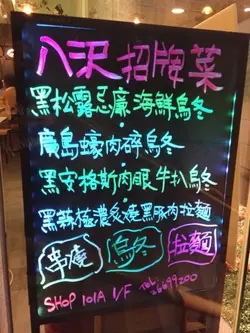 八沢招牌菜
黑松露忌廉海鮮烏冬
廣島蠔肉碎烏冬
黑安格斯肉眼牛扒烏冬
黑蒜極濃炙燒黑豚肉拉麵
串燒 烏冬 拉麵
SHOP 101A 1/F Tel: 26699200